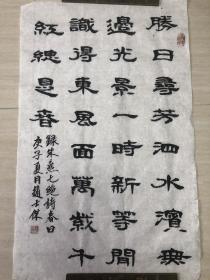 勝日尋芳泗水濱無
邊光景一時新等閒
識得東風面萬紫千
紅總是春
錄朱熹七絕詩春日
庚子夏月趙士傑